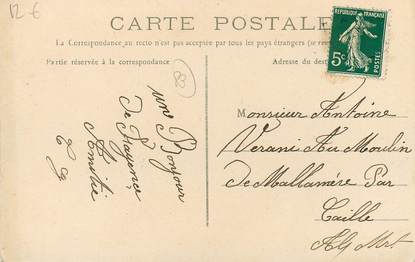 12 €
CARTE POSTALE
La Correspondance au recto n'est pas acceptée par tous les pays étrangers (se ren
Partie réservée à la correspondance
Adresse du dest
RÉPUBLIQUE FRANÇAISE
5c
un Bonjour
de Fayence
Amitié
Monsieur Antoine
Verani Au Moulin
de Mallamére Par
Caille
Alp Mrt